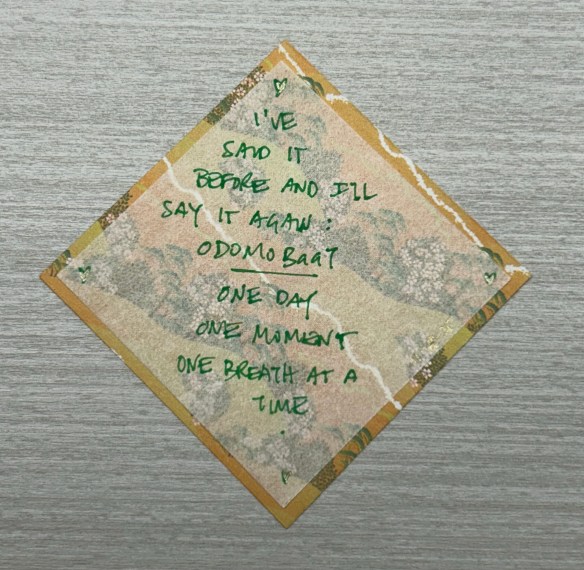 I'VE
SAID IT
BEFORE AND I'LL
SAY IT AGAIN :
ODOMOBaaT
ONE DAY
ONE MOMENT
ONE BREATH AT A
TIME
.